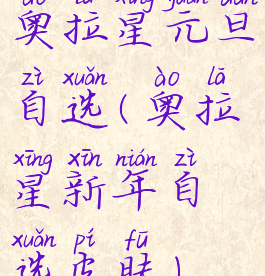 ào lā xīng yuán dàn
奥拉星元旦
zì xuǎn ào lā
自选(奥拉
xīng xīn nián zì
星新年自
xuǎn pí fū
选皮肤)